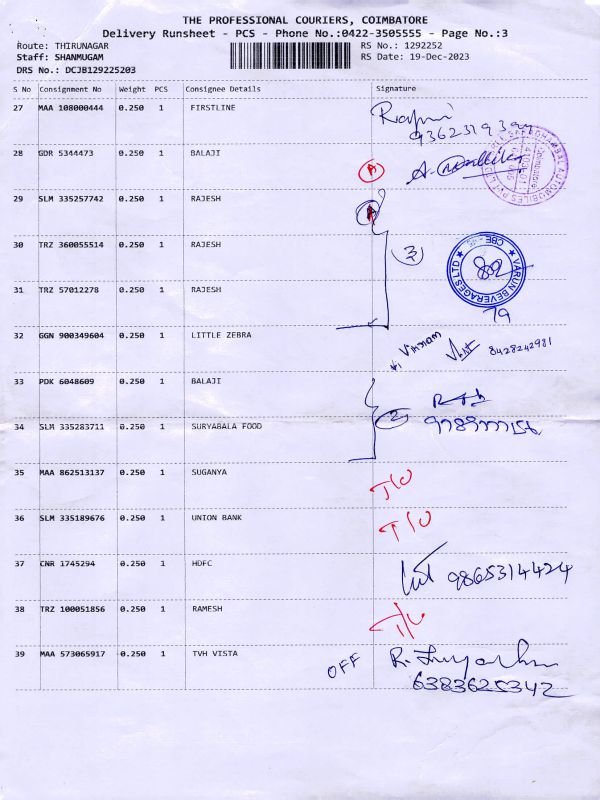 THE PROFESSIONAL COURIERS, COIMBATORE
Delivery Runsheet - PCS - Phone No.:0422-3505555 - Page No.:3
Route: THIRUNAGAR RS No.: 1292252
Staff: SHANMUGAM RS Date: 19-Dec-2023
DRS No.: DCJB129225203
S No Consignment No Weight PCS Consignee Details Signature
27 MAA 108000444 0.250 1 FIRSTLINE
28 GDR 5344473 0.250 1 BALAJI
29 SLM 335257742 0.250 1 RAJESH
30 TRZ 360055514 0.250 1 RAJESH
VARUN BEVERAGES LTD
CBE
31 TRZ 57012278 0.250 1 RAJESH
79
32 GGN 900349604 0.250 1 LITTLE ZEBRA
Vikram 8428242981
33 PDK 6048609 0.250 1 BALAJI
34 SLM 335283711 0.250 1 SURYABALA FOOD
2
35 MAA 862513137 0.250 1 SUGANYA
36 SLM 335189676 0.250 1 UNION BANK
37 CNR 1745294 0.250 1 HDFC
9865314424
38 TRZ 100051856 0.250 1 RAMESH
39 MAA 573065917 0.250 1 TVH VISTA
OFF
6383625342